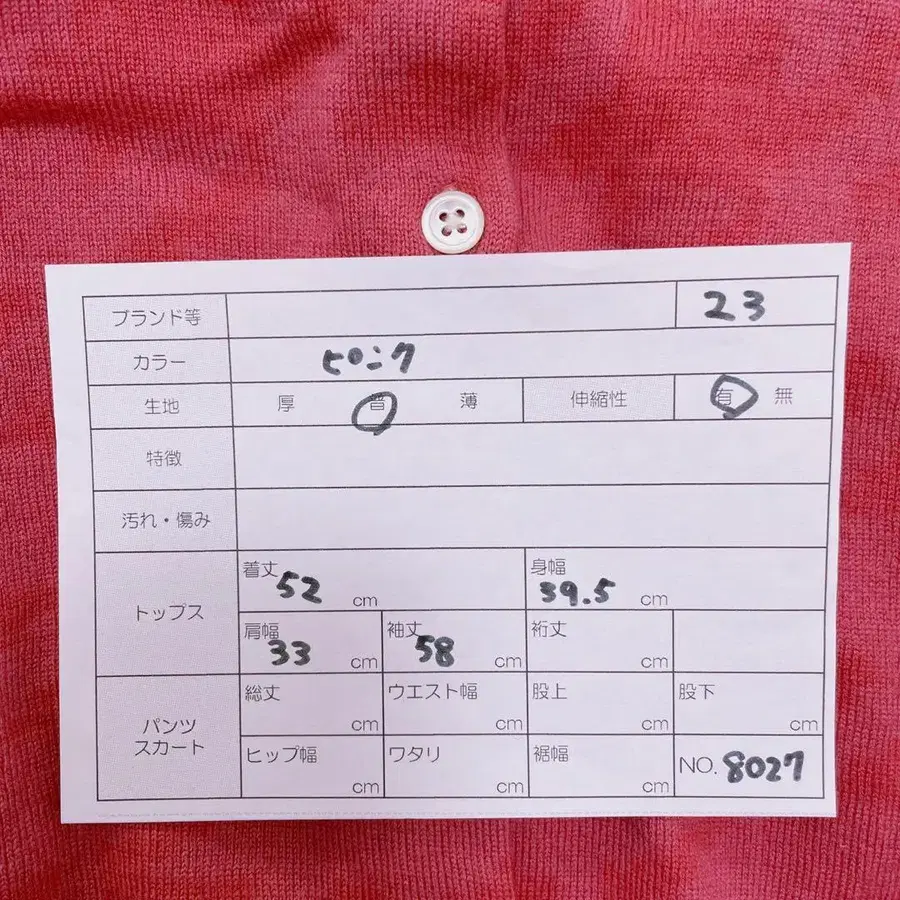 ブランド等 23
カラー ピンク
生地 厚 普 薄 伸縮性 有 無
特徴
汚れ・傷み
トップス
着丈 52 cm 身幅 39.5 cm
肩幅 33 cm 袖丈 58 cm 裄丈 cm
パンツ
スカート
総丈 cm ウエスト幅 cm 股上 cm 股下 cm
ヒップ幅 cm ワタリ cm 裾幅 cm NO. 8027